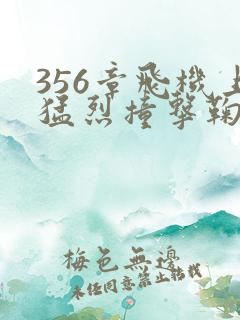 356章飛機上
猛烈撞擊鞠
梅色無邊
未經同意禁止轉載